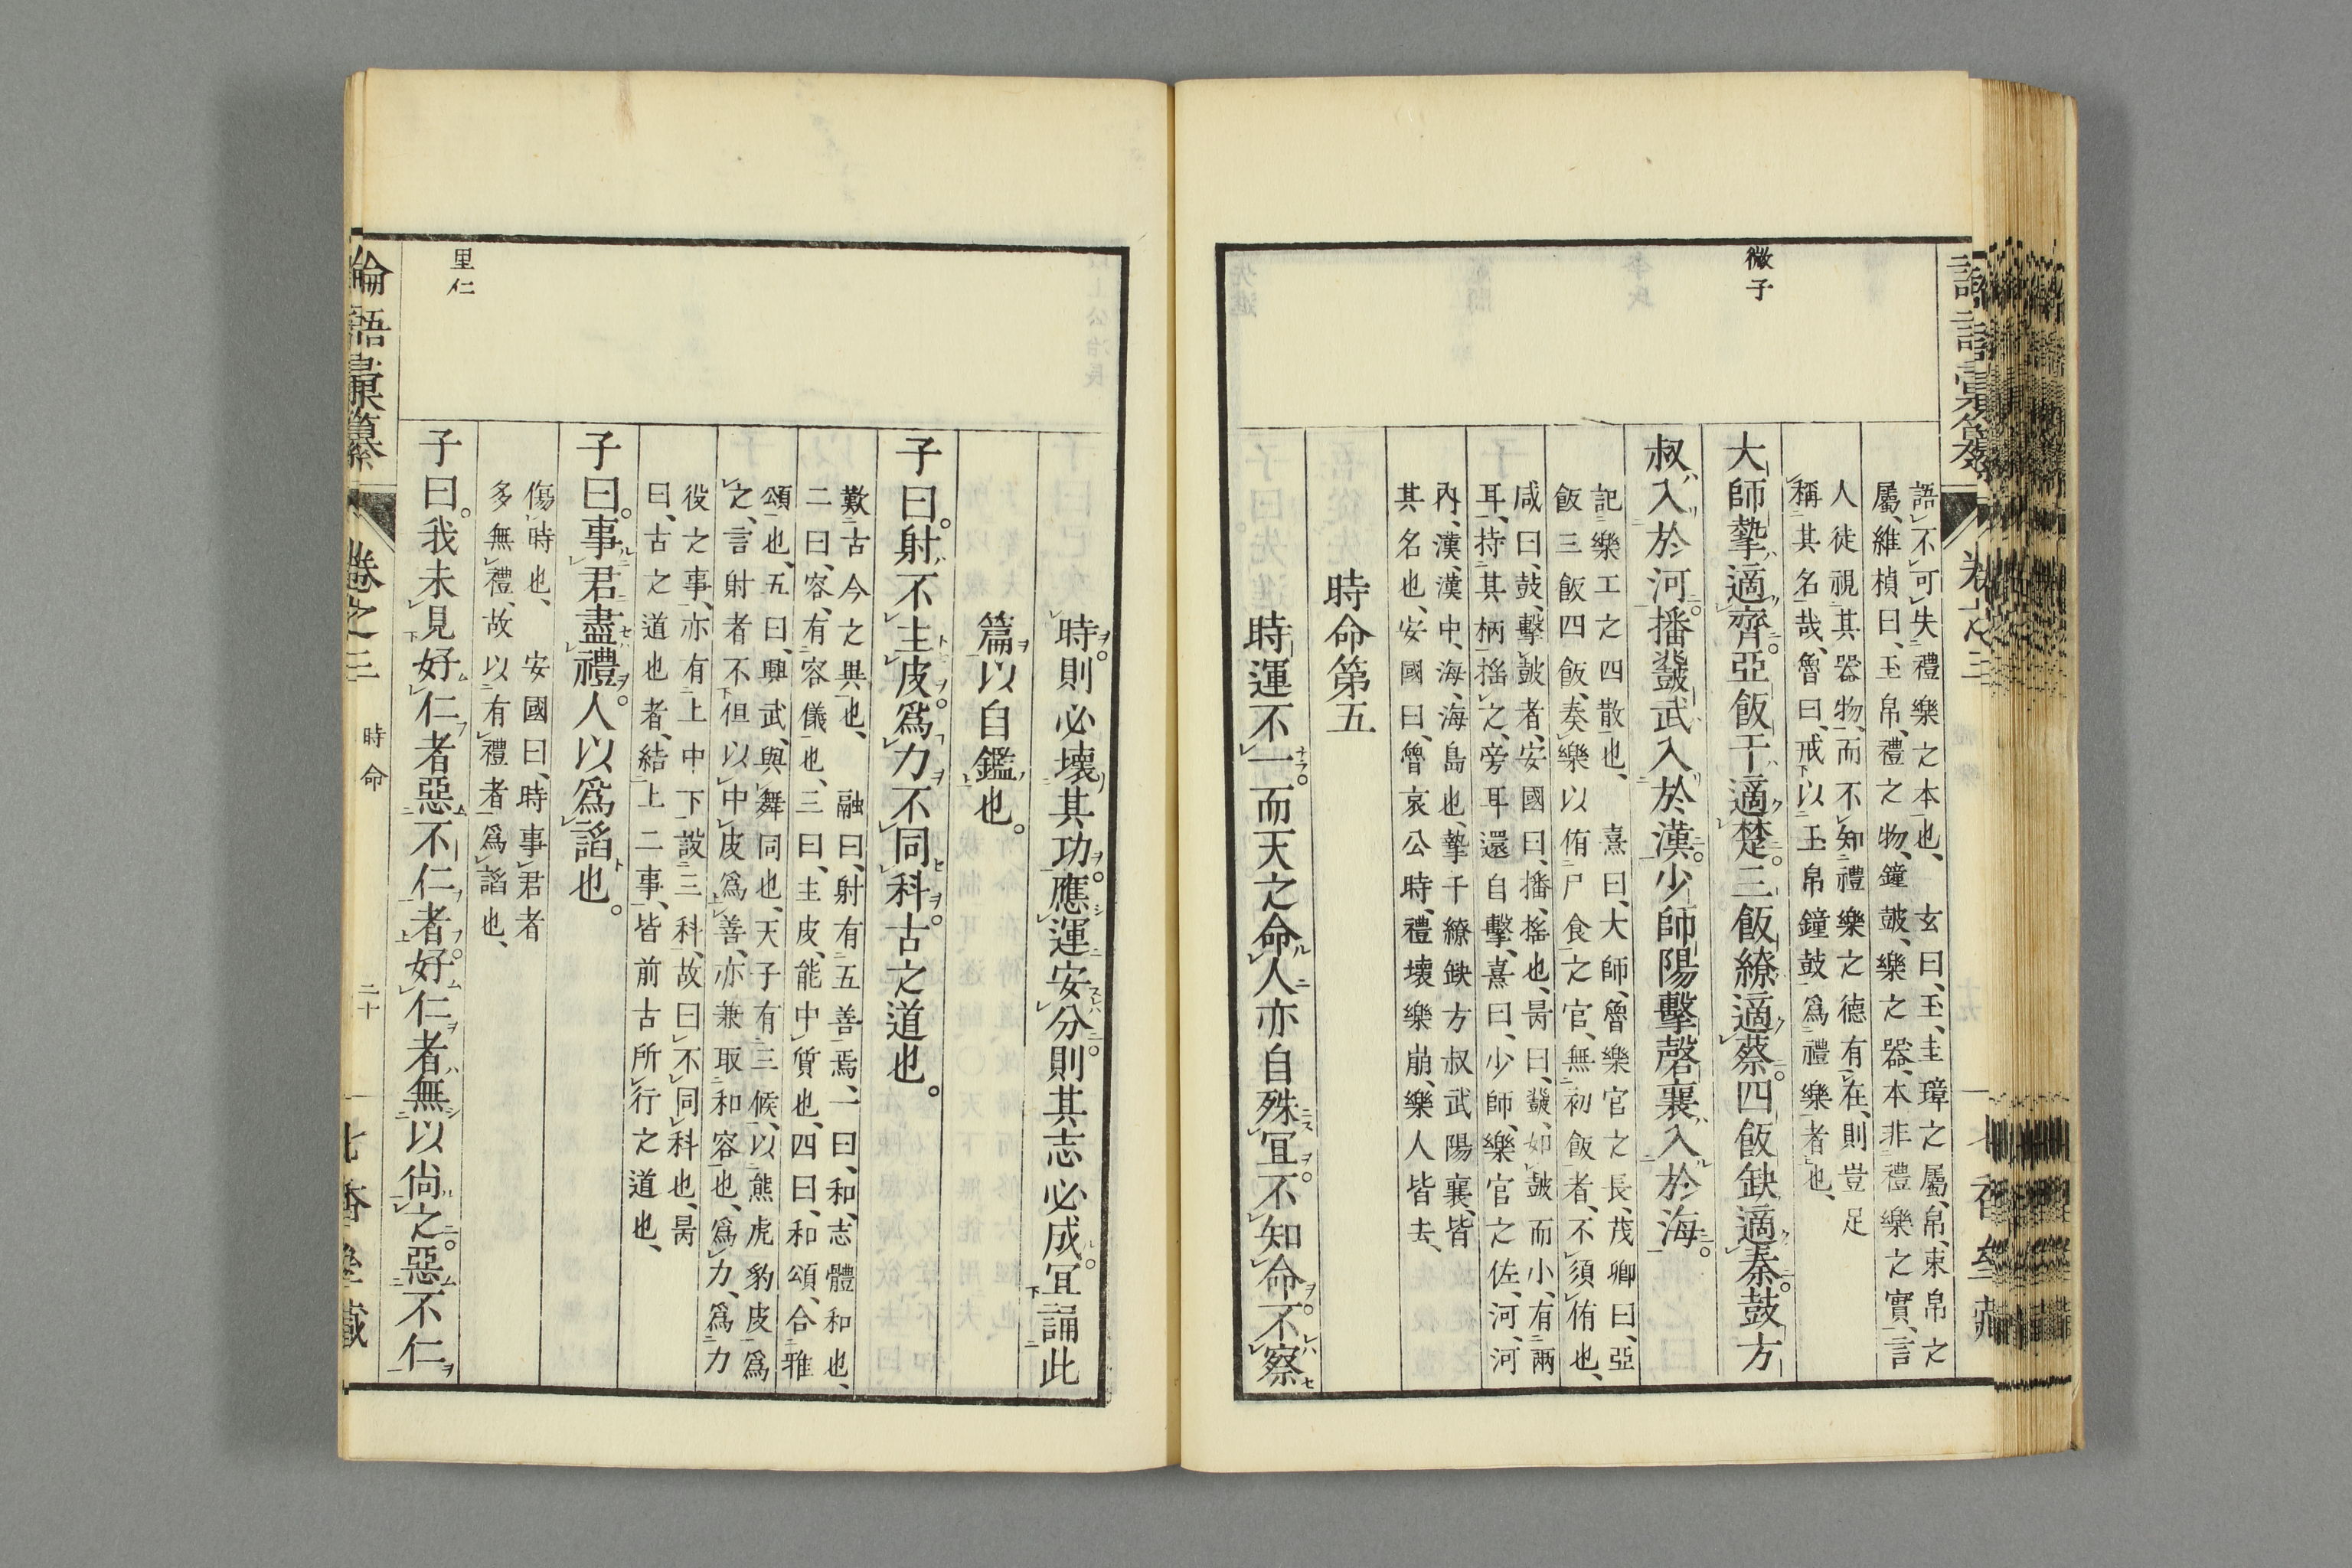 微子
語不可失禮樂之本也、玄曰、玉、圭璋之屬、帛、束帛之
屬、維楨曰、玉帛、禮之物、鐘皷、樂之器、本非禮樂之實、言
人徒視其器物、而不知禮樂之德有在、則豈足
稱其名哉、魯曰、戒以玉帛鐘鼓爲禮樂者也、
大師摯適齊。亞飯干適楚。三飯繚適蔡。四飯缺適秦。鼓方
叔入於河。播鼗武入於漢。少師陽擊磬襄入於海。
記樂工之四散也、熹曰、大師、魯樂官之長、茂卿曰、亞
飯三飯四飯、奏樂以侑尸食之官、無初飯者、不須侑也、
咸曰、鼓、擊皷者、安國曰、播、搖也、昺曰、鼗、如皷而小、有兩
耳、持其柄搖之、旁耳還自擊、熹曰、少師、樂官之佐、河、河
內、漢、漢中、海、海島也、摯干繚缺方叔武陽襄、皆
其名也、安國曰、魯哀公時、禮壞樂崩、樂人皆去、
時命第五
時運不一。而天之命人亦自殊宜。不知命。不察
時。則必壞其功。應運安分。則其志必成。宜誦此
篇以自鑑也。
子曰。射不主皮。爲力不同科。古之道也。
歎古今之異也、融曰、射有五善焉、一曰、和、志體和也、
二曰、容、有容儀也、三曰、主皮、能中質也、四曰、和頌、合雅
頌也、五曰、興武、與舞同也、天子有三候、以熊虎豹皮爲
之、言射者不但以中皮爲善、亦兼取和容也、爲力、爲力
役之事、亦有上中下設三科、故曰不同科也、昺
曰、古之道也者、結上二事、皆前古所行之道也、
子曰。事君盡禮。人以爲諂也。
傷時也、安國曰、時事君者
多無禮、故以有禮者爲諂也、
里仁
子曰。我未見好仁者惡不仁者。好仁者無以尙之。惡不仁
論語彙纂
卷之三
時命
二十